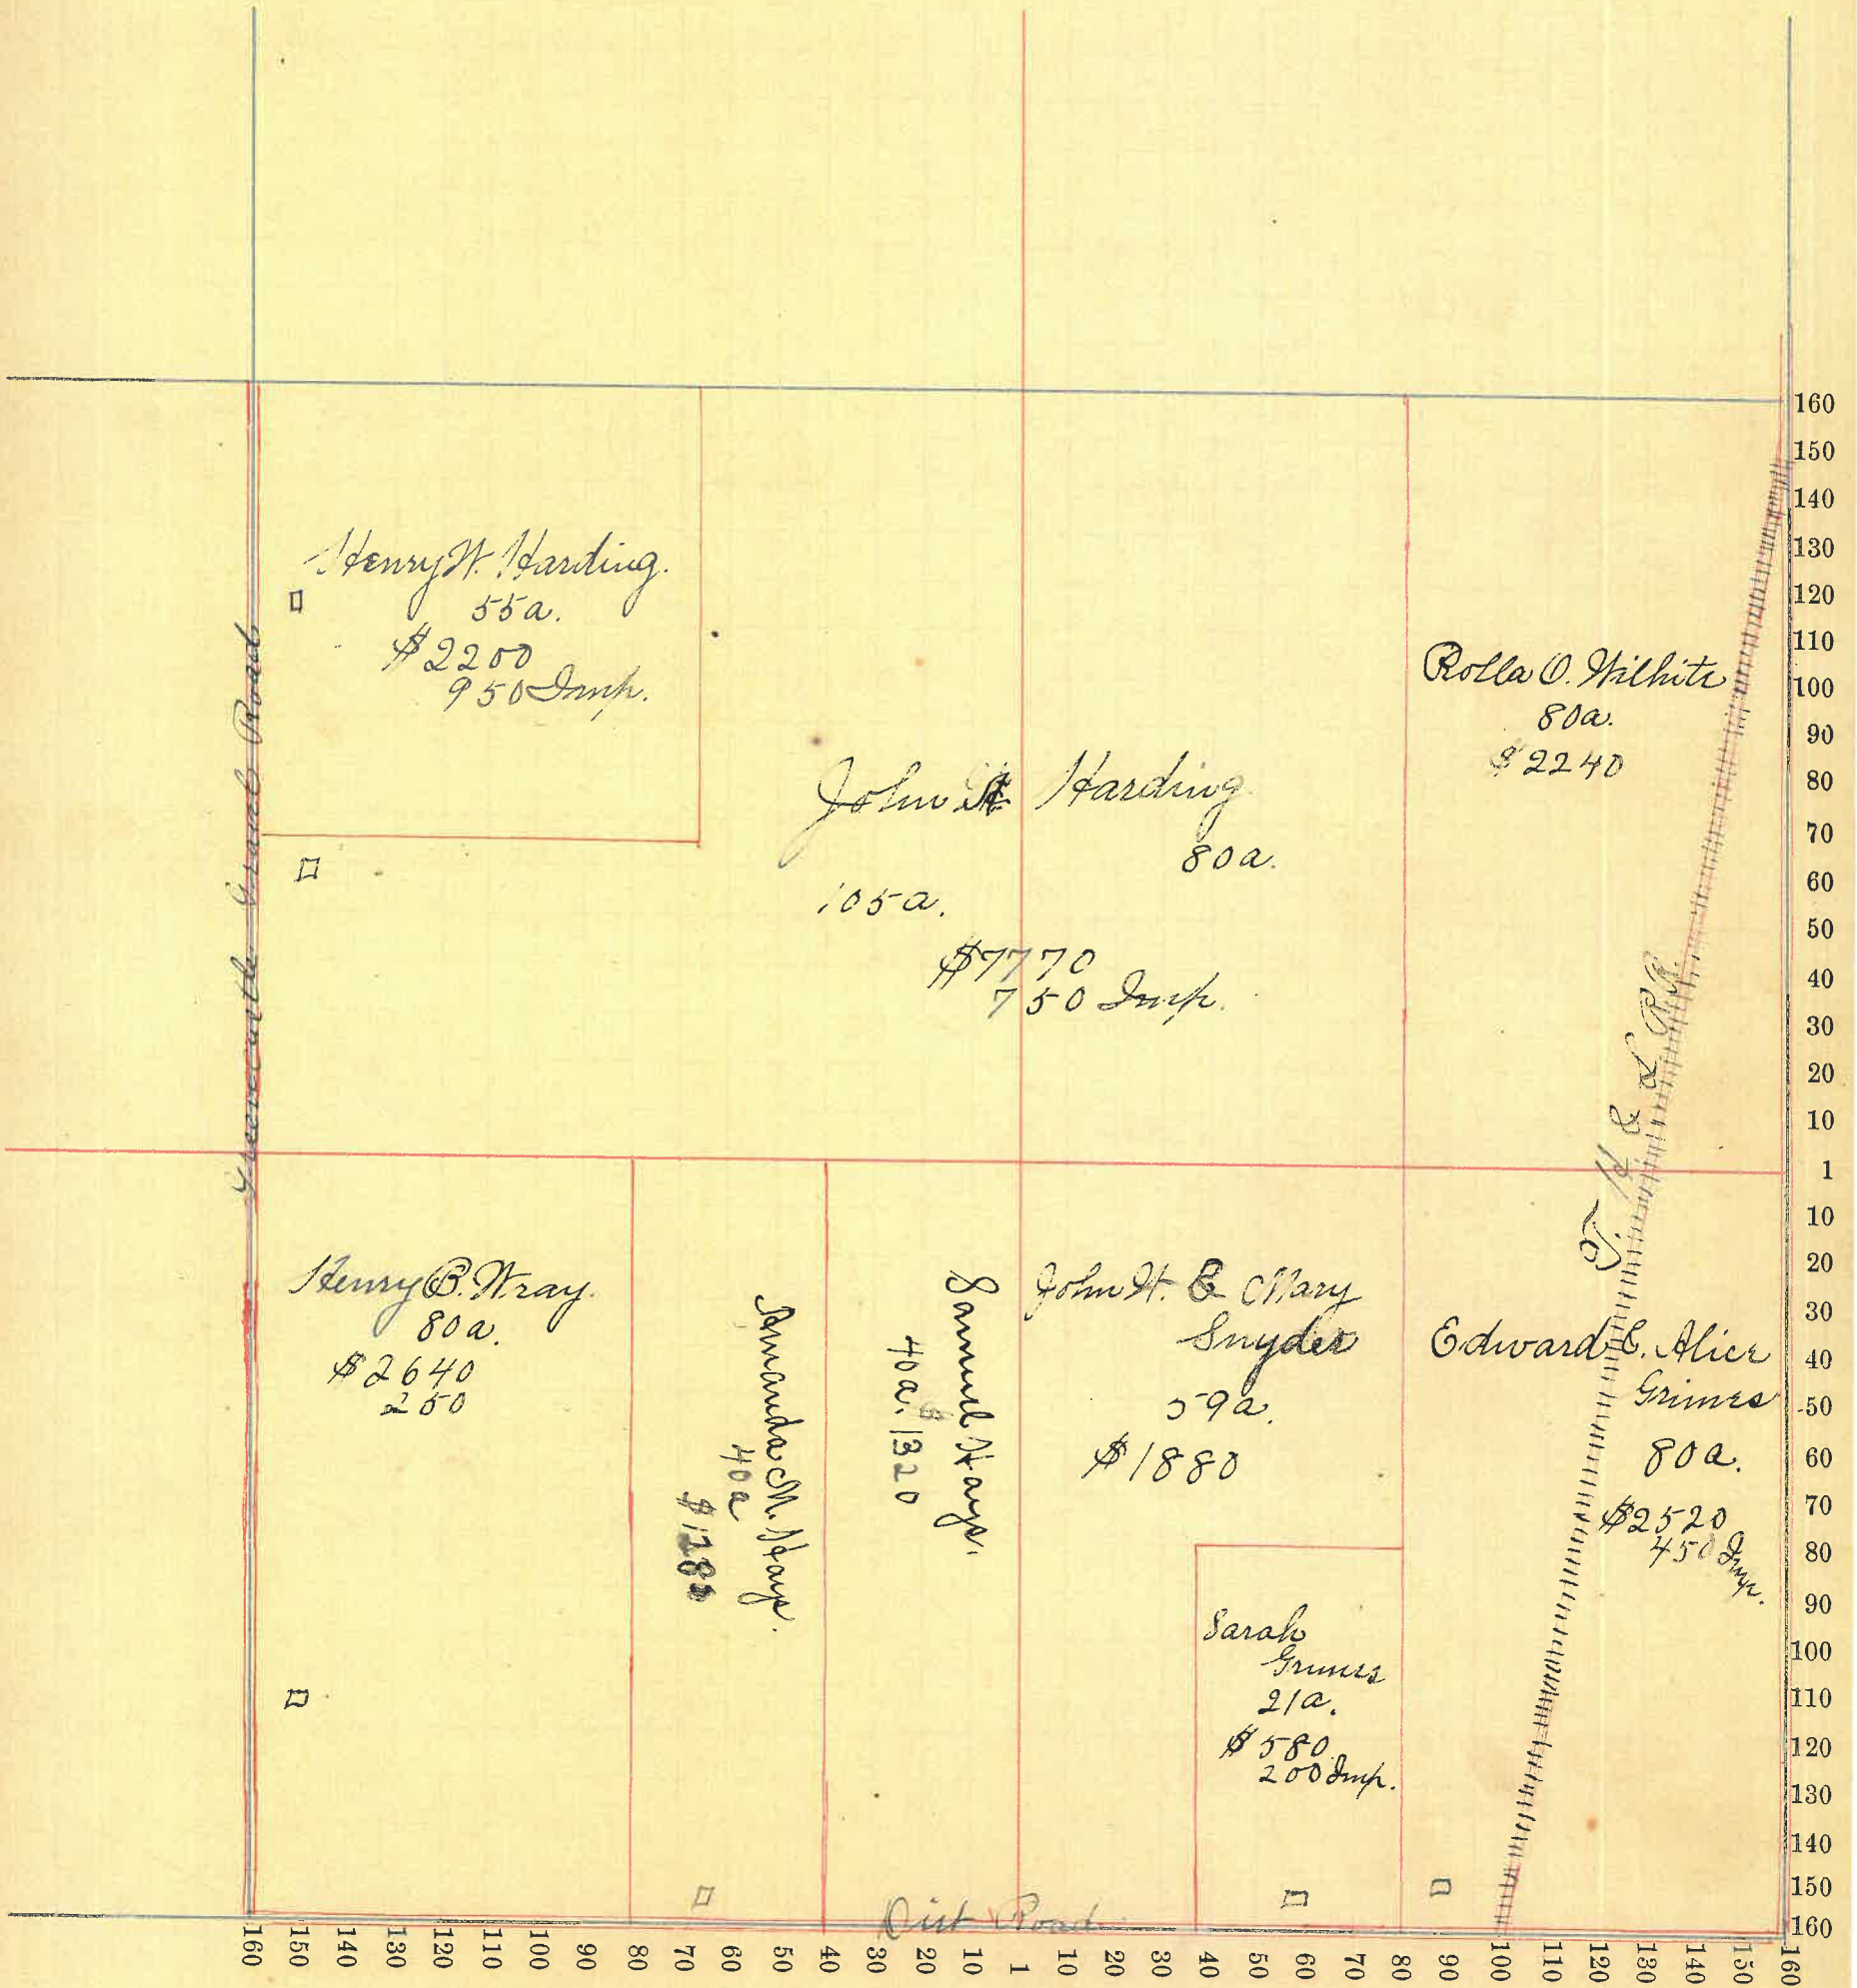 Henry W. Harding.
55a.
$2200
950 Imp.
John H Harding
80a.
105a.
$7770
750 Imp.
Rolla O. Wilhite
80a.
$2240
Greencastle Grand Road
T. H & L RR.
Henry B. Wray.
80a.
$2640
250
Amanda M. Hays.
40a
$1280
Samuel Hays.
40a. $1320
John H. & Mary
Snyder
59a.
$1880
Sarah
Grimes
21a.
$580
200 Imp.
Edward E. Alice
Grimes
80a.
$2520
450 Imp.
Dist Road
160
150
140
130
120
110
100
90
80
70
60
50
40
30
20
10
1
10
20
30
40
50
60
70
80
90
100
110
120
130
140
150
160
160 150 140 130 120 110 100 90 80 70 60 50 40 30 20 10 1 10 20 30 40 50 60 70 80 90 100 110 120 130 140 150 160